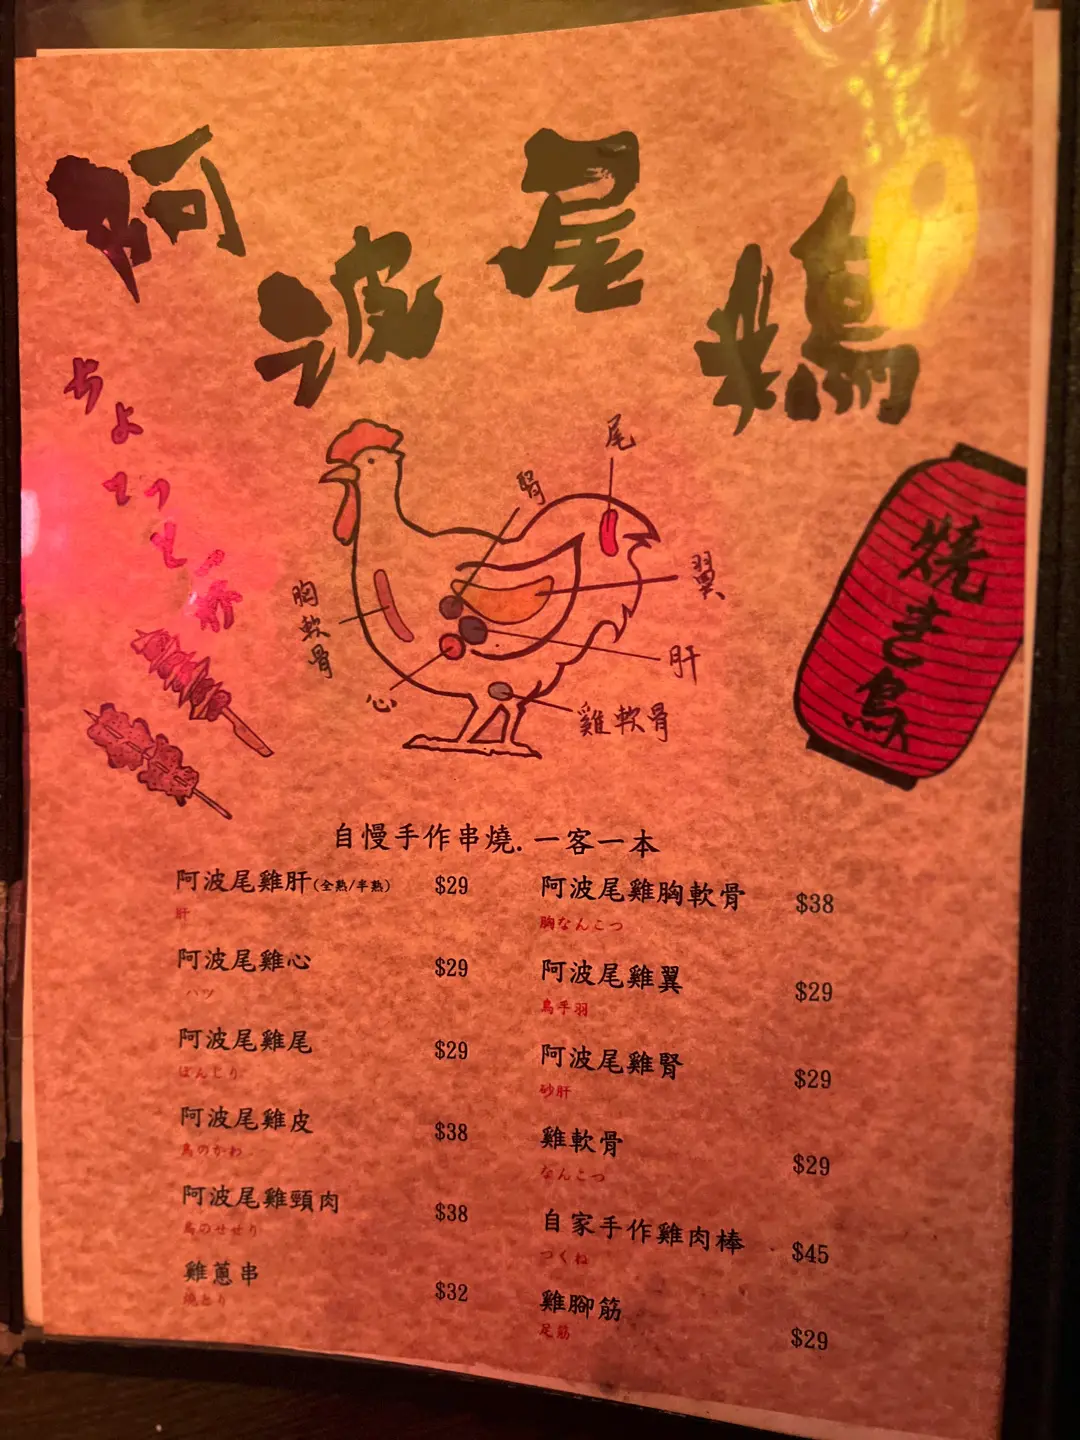 阿波尾鶏
ちょっとー杯
尾
腎
翼
胸軟骨
肝
心
雞軟骨
焼き鳥
自慢手作串燒.一客一本
阿波尾雞肝(全熟/半熟) $29
肝
阿波尾雞心 $29
ハツ
阿波尾雞尾 $29
ぼんじり
阿波尾雞皮 $38
鳥のかわ
阿波尾雞頸肉 $38
鳥のせせり
雞蔥串 $32
焼とり
阿波尾雞胸軟骨 $38
胸なんこつ
阿波尾雞翼 $29
鳥手羽
阿波尾雞腎 $29
砂肝
雞軟骨 $29
なんこつ
自家手作雞肉棒 $45
つくね
雞腳筋 $29
足筋